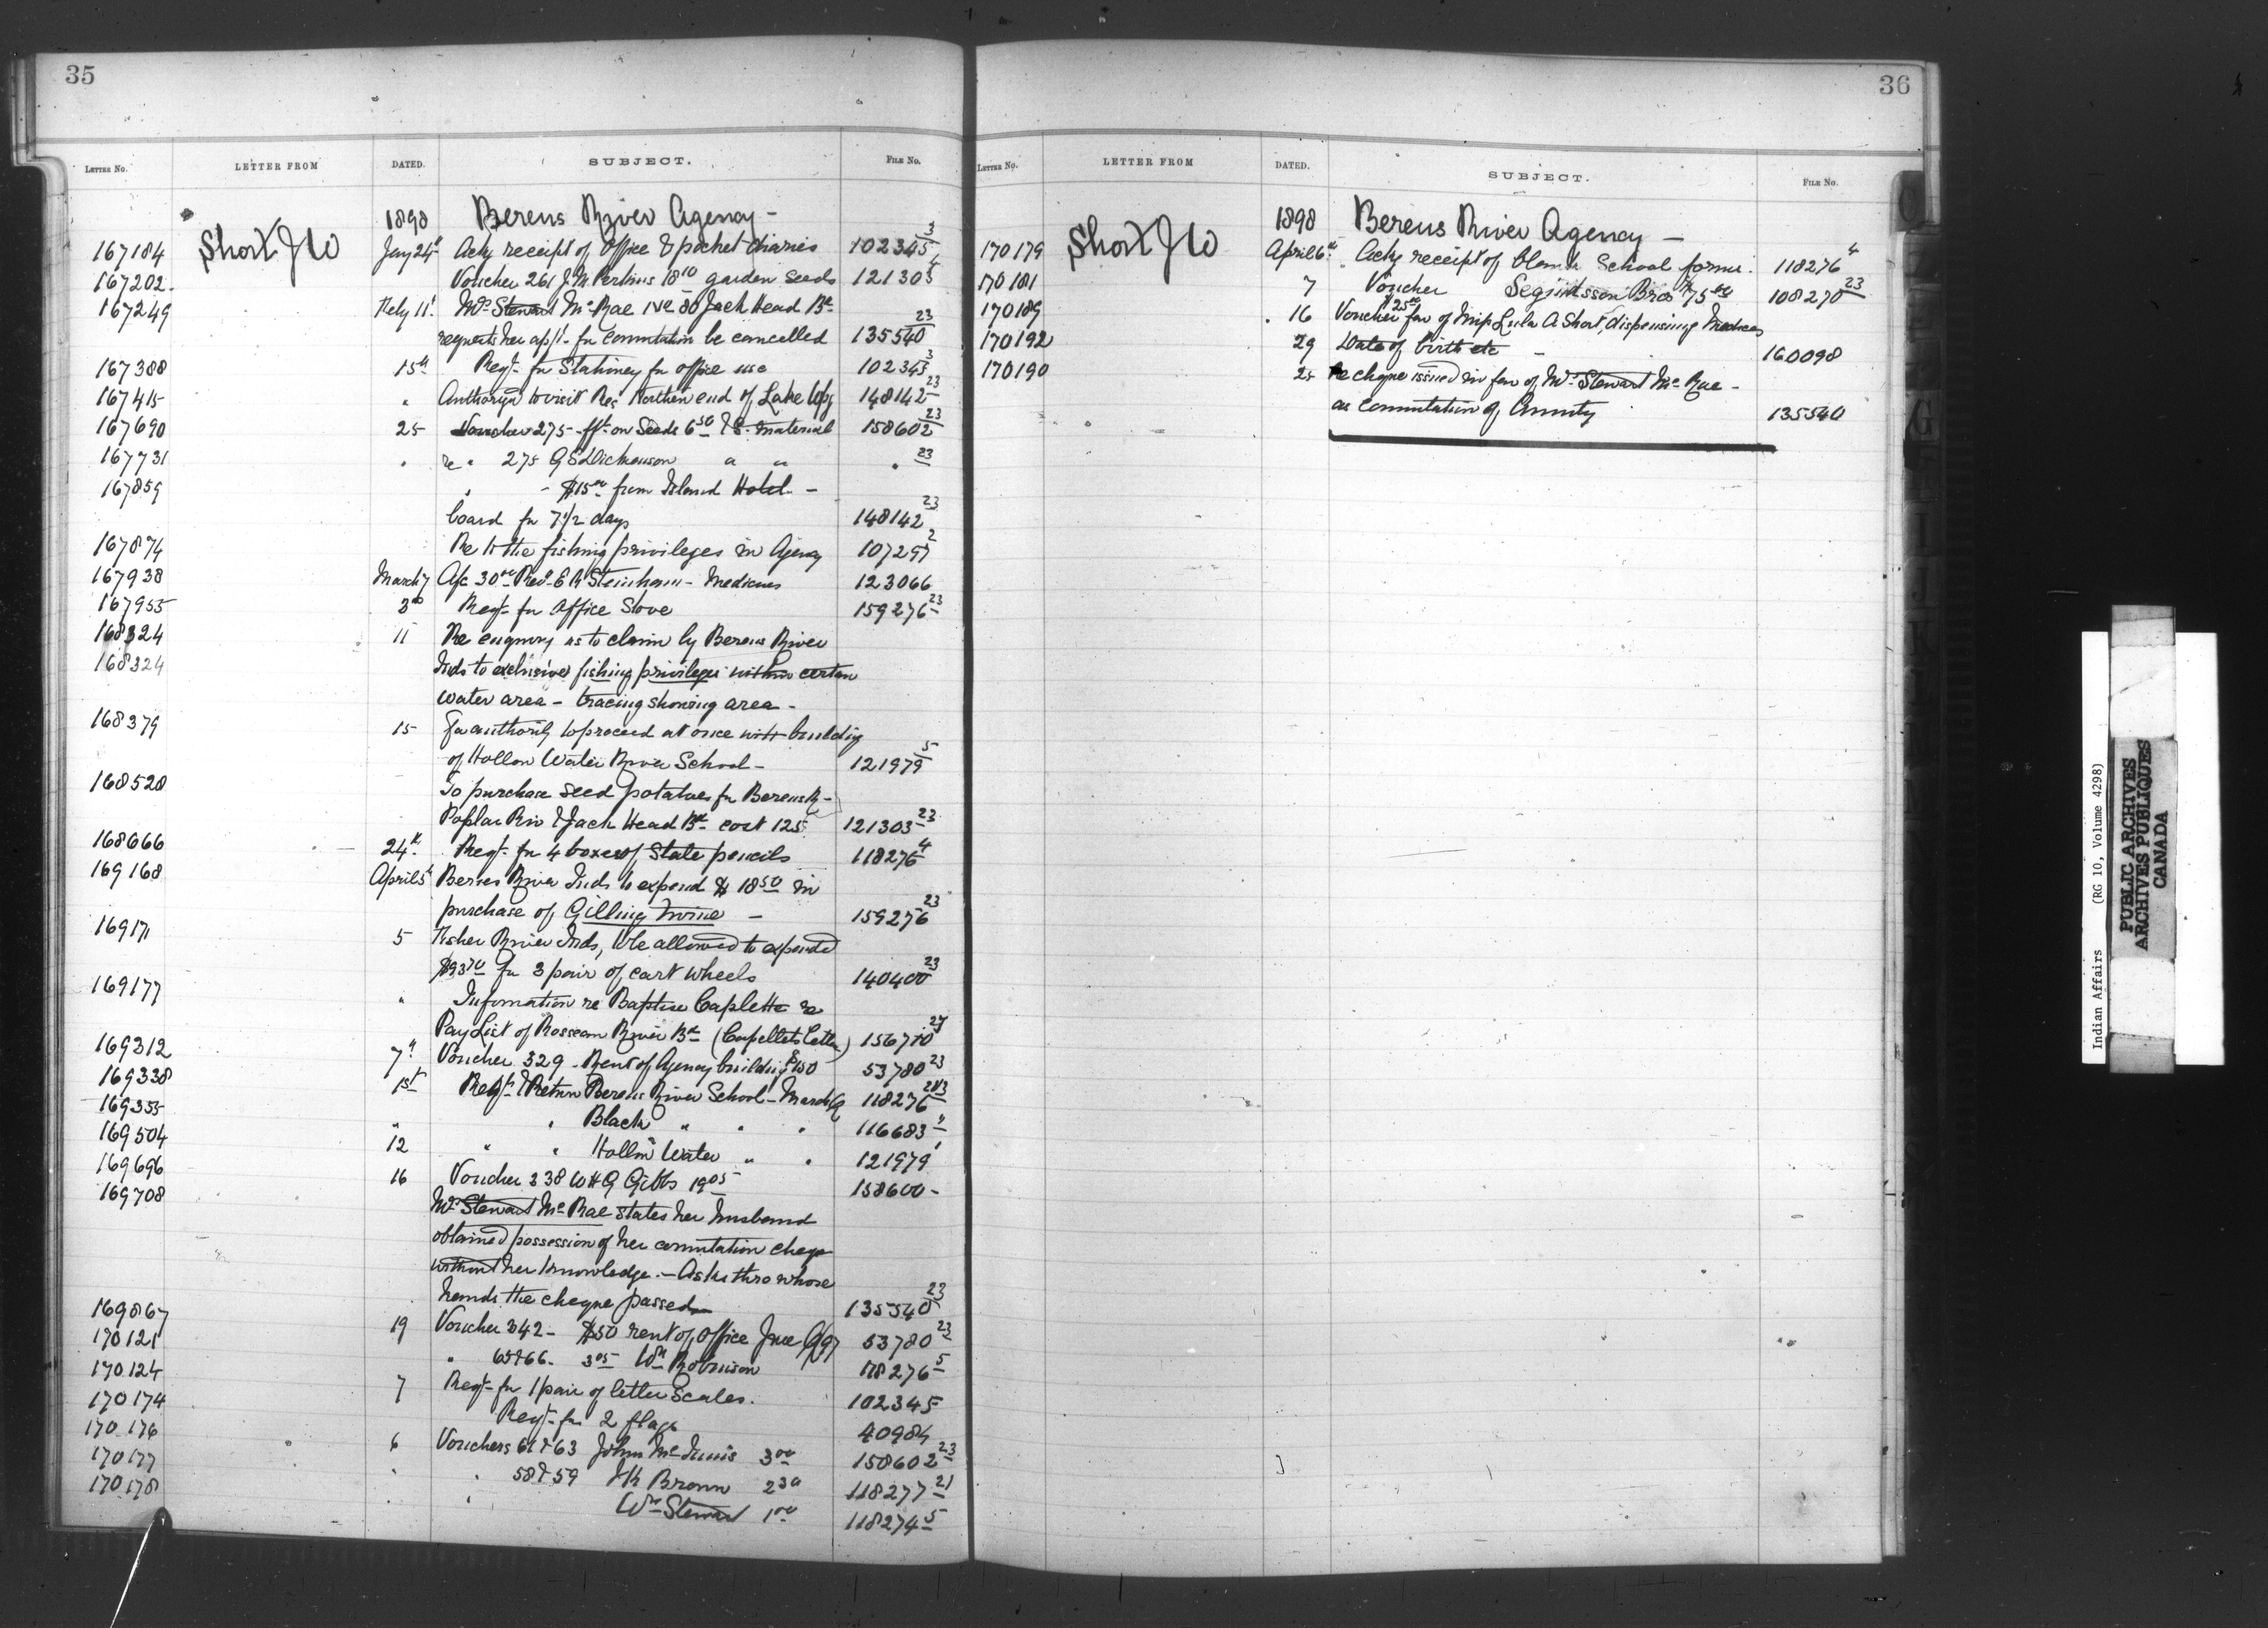 35
LETTER NO. LETTER FROM DATED. SUBJECT. FILE No.
1898 Berens River Agency -
167184 Short J W Jany 24th Ackg receipt of Office & pocket diaries 102345 3
167202 Voucher 261 J. M. Perkins 18 10 garden seeds 121303 4
167249 Feby 11th Mrs Stewart McRae No 80 Jack Head Bd
requests her appl - for commutation be cancelled 135540 23
167388 15th Reqt - for Stationery for office use 102345 3
167415 " to visit Res Northern end of Lake Wpg 148142 23
167690 25 Voucher 275 - fft - on Seeds 6 50 & S. material 158602 23
167731 " re " 275 G S Dickenson " " " 23
167859 " - $15 00 from Island Hotel -
board for 7 1/2 days 148142 23
167874 Re to the fishing privileges in Agency 107297 2
167938 March 7 A/c 30 00 Revd E R Steinhaur - Medicines 123066
167955 3rd Reqt - for Office Stove 159276 23
168324 11 Re enquiry as to claim by Berens River
168324 Inds to exclusive fishing privileges within certain
water area - tracing showing area -
168379 15 For authority to proceed at once with building
of Hollow Water River School - 121979 5
168528 To purchase seed potatoes for Berens R -
Poplar Riv & Jack Head Bd - cost 125 121303 23
168666 24th Reqt - for 4 boxes of Slate pencils 118276 4
169168 April 5th Berens River Inds to expend $ 18 50 in
purchase of Gilling Twine - 159276 23
169171 5 Fisher River Inds, to be allowed to expend
$93 70 for 3 pair of cart wheels 140400 23
169177 " Information re Baptise Caplette re
Pay List of Rosseau River Bd (Capellets Letter) 156710 27
169312 7th Voucher 329 - Rent of Agency building $150 53780 23
169338 1st Reqt & Return Berens River School - March Q 118276
169355 " " Black " " " 116683 "
169504 12 " " Hollow Water " " 121979
169696 16 Voucher 338 W H G Gibbs 19 05 158600 -
169708 Mrs Stewart McRae states her husband
obtained possession of her commutation cheque
without her knowledge. - Asks thro whose
hands the cheque passed 135540 23
169867 19 Voucher 342 - $50 rent of Office June Q/97 53780 23
170121 " 65 & 66 - 3 05 Wm Robinson 118276 5
170124 7 Reqt - for 1 pair of letter Scales. 102345
170174 Reqt - for 2 flags 40984
170176 6 Vouchers 61 & 63 John McInnis 3 00 158602 23
170177 " " 58 & 59 J K Brown 2 30 118277 21
170178 " " Wm Stewart 1 00 118274 5
36
LETTER NO. LETTER FROM DATED. SUBJECT. FILE No.
1898 Berens River Agency -
170179 Short J W April 6th Ackg receipt of blank School forms. 118276 4
170181 7 Voucher Bros $75 00 108270 23
170189 16 Voucher $25 00 fav of Miss Lula A Short, dispensing Medicines
170192 29 Date of birth etc - 160098
170190 25 Re cheque issued in fav of Mrs Stewart McRae -
as commutation of Annuity 135540
Indian Affairs (RG 10, Volume 4298)
PUBLIC ARCHIVES
ARCHIVES PUBLIQUES
CANADA